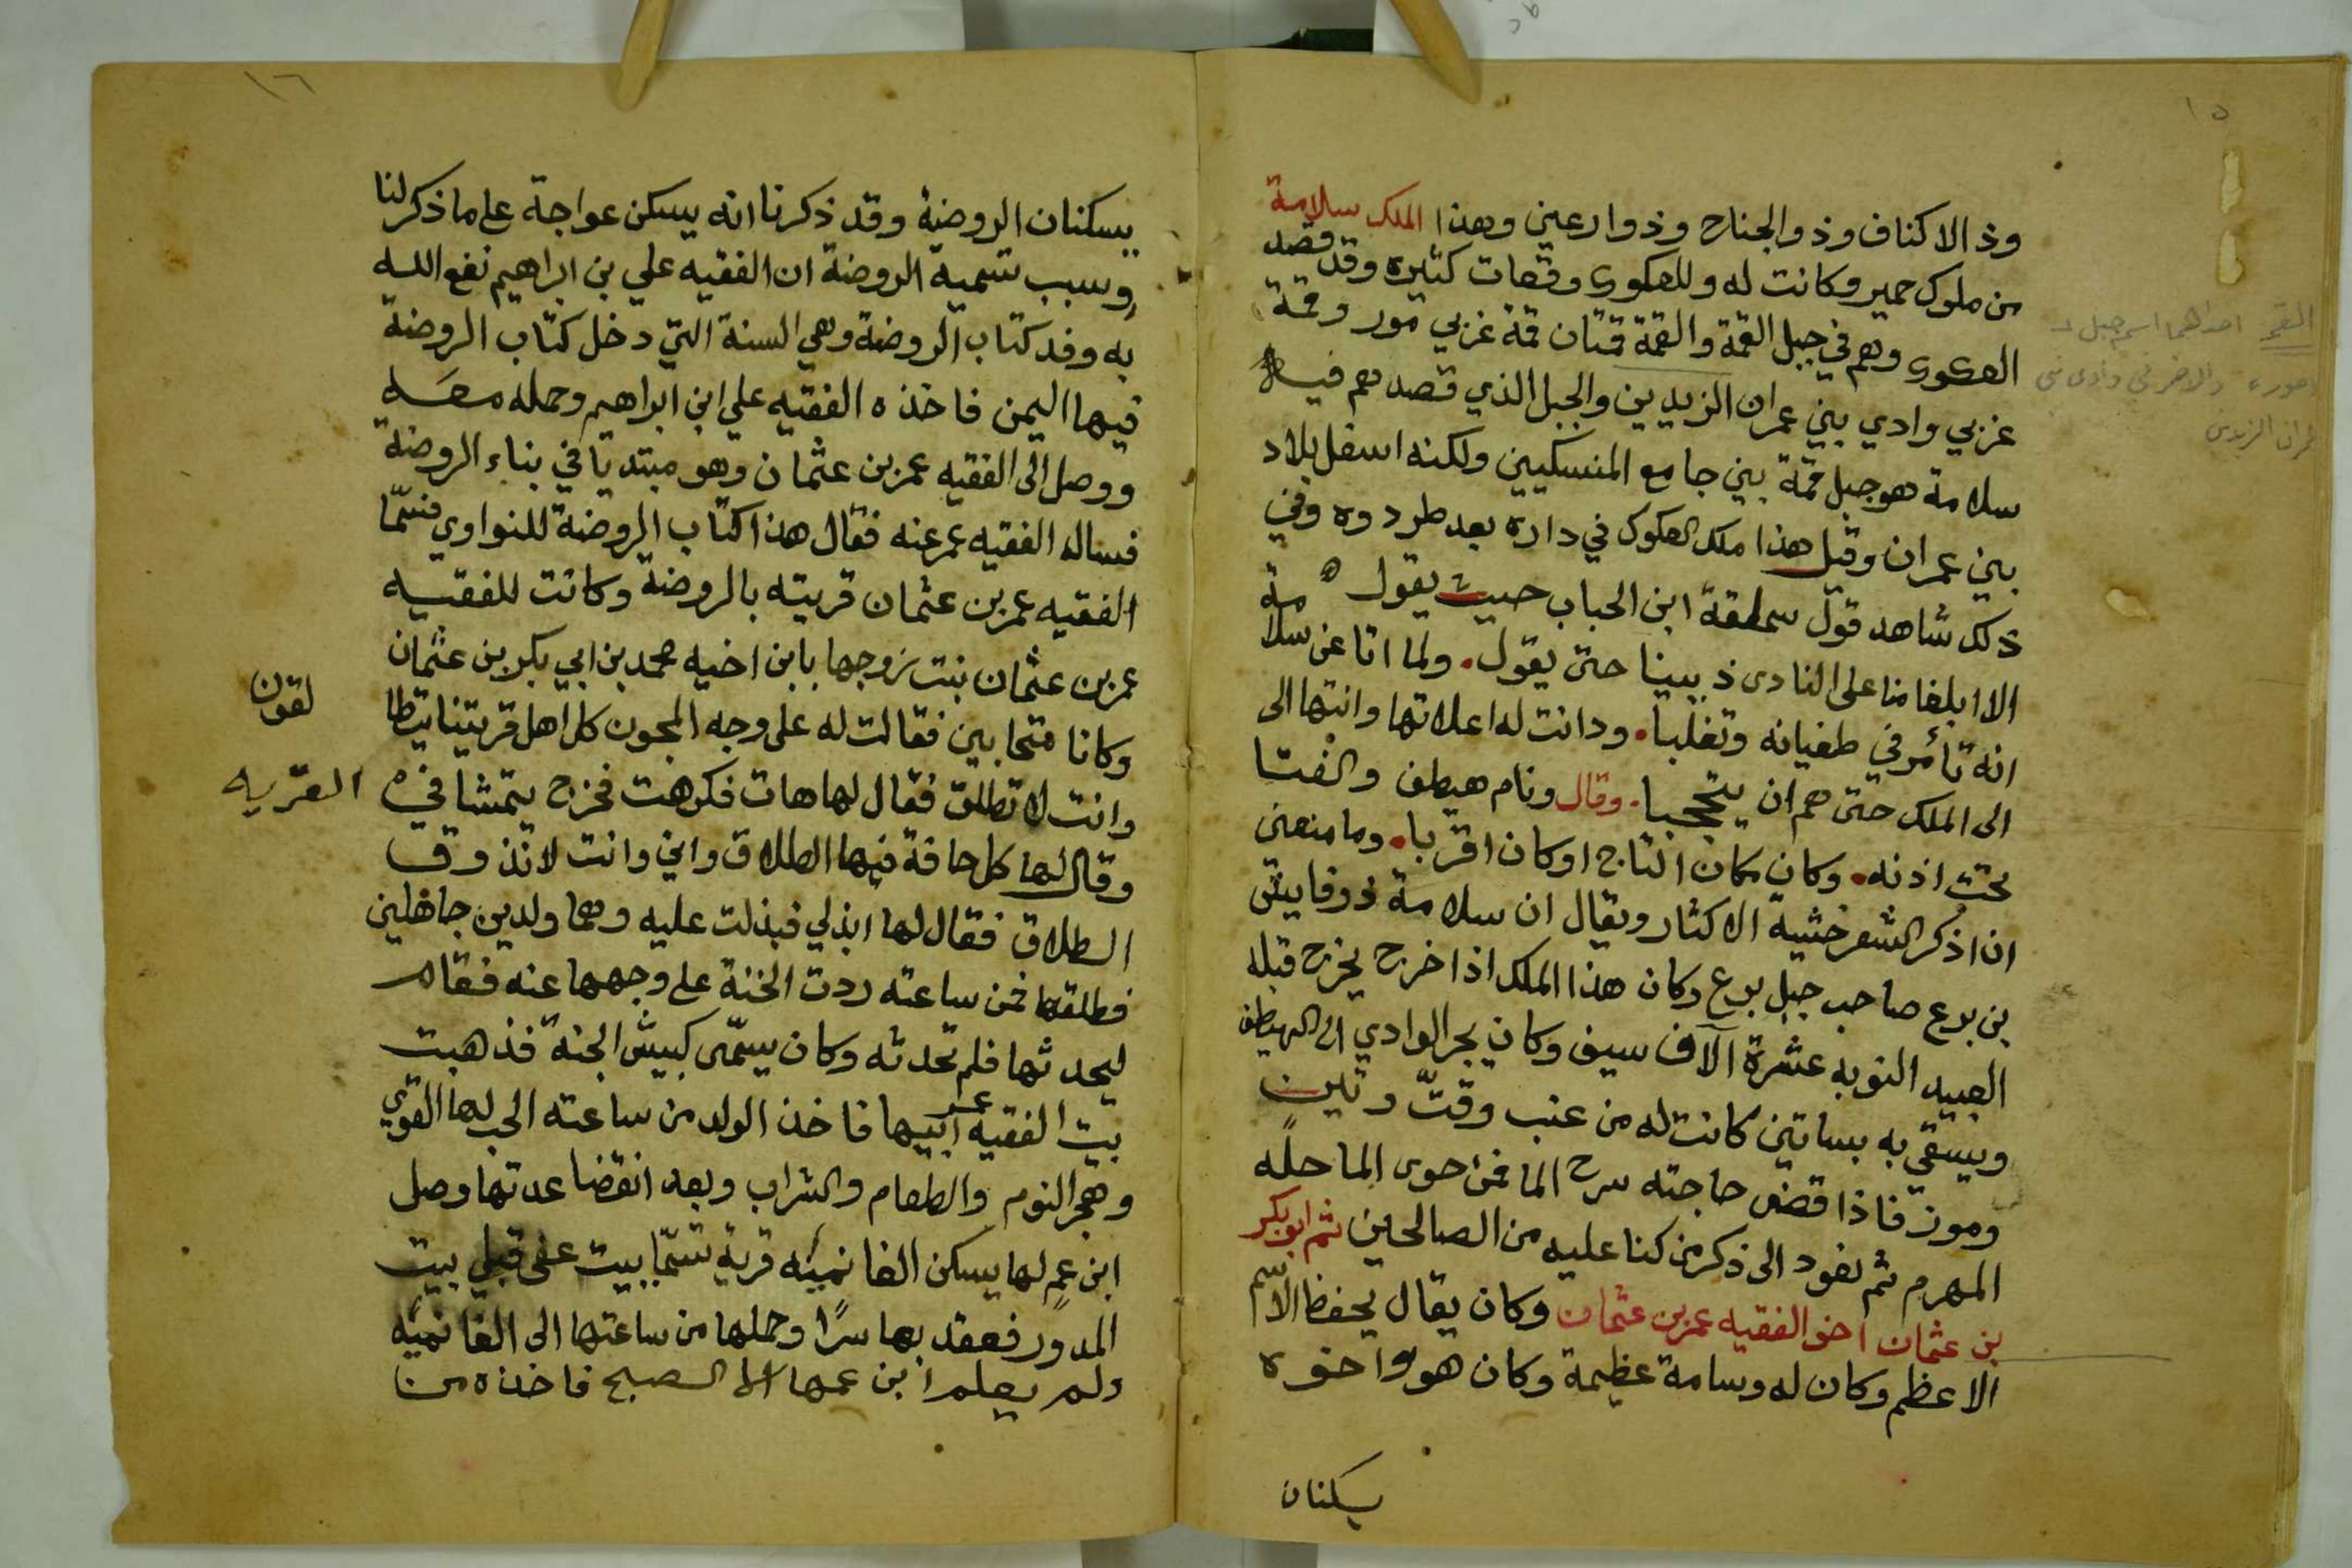 ١٥
وذ الاكناف وذ والجناح وذ وارعين وهذا الملك سلامة
من ملوك حمير وكانت له وللعكوى وقعات كثيره وقد قصد
العكوى وهم في جبل القمة والقمة قمتان قمة غربي مور وقمة
غربي وادي بني عمران الزيديين والجبل الذي قصدهم فيه
سلامة هو جبل قمة بني جامع المنسكيين ولكنه اسفل بلاد
بني عمران وقبل هذا ملك العكوى في داره بعد طردوه وفي
ذلك شاهد قول سملقة ابن الحباب حيث يقول
الا ابلغا منا على النادى ذ بينا حتى يقول. ولما اتا عن سلامة
انه تأمر في طغيانه وتغلبا. ودانت له اعلاتها وانتها الى
الى الملك حتى هم ان يتحجبا. وقال ونام هيطف والفتا
تحت اذنه. وكان مكان التاج اوكان اقربا. وما منعنى
ان اذكر الشعر خشية الاكثار ويقال ان سلامة ذو فايش
بن برع صاحب جبل برع وكان هذا الملك اذا خرج يخرج قبله
العبيد النوبه عشرة آلاف سيف وكان يجر الوادي الى الهيطف
ويسقي به بساتين كانت له من عنب وقت وتين
وموز فاذا قضى حاجته سرح الما فمن حوى الما حله
المهرم ثم نعود الى ذكر من كنا عليه من الصالحين ثم ابو بكر
بن عثمان اخو الفقيه عمر بن عثمان وكان يقال يحفظ الاسم
الاعظم وكان له وسامة عظيمة وكان هو واخوه
يسكنان
القمه احداهما اسم جبل
والاخر في وادى بني
عمران الزيدى
١٦
يسكنان الروضة وقد ذكرنا انه يسكن عواجة على ما ذكر لنا
وسبب تسمية الروضة ان الفقيه علي بن ابراهيم نفع الله
به وفد كتاب الروضة وهي السنة التي دخل كتاب الروضة
فيها اليمن فاخذه الفقيه علي ابن ابراهيم وحمله معه
ووصل الى الفقيه عمر بن عثمان وهو مبتديا في بناء الروضة
فساله الفقيه عمر عنه فقال هذا كتاب الروضة للنواوي فسمّا
الفقيه عمر بن عثمان قريته بالروضة وكانت للفقيه
عمر بن عثمان بنت زوجها بابن اخيه محمد بن ابي بكر بن عثمان
وكانا متحابين فقالت له على وجه المجون كل اهل قريتنا يتطا
لقون
وانت لا تطلق فقال لها هات فكرهت فخرج يتمشا في
القريه
وقال لها كل حافة فيها الطلاق واني وانت لا نذوق
الطلاق فقال لها ابذلي فبذلت عليه وهما ولدين جاهلين
فطلقها فمن ساعته ردت الخنة على وجهها عنه فقام
ليحدثها فلم تحدثه وكان يسمّى كبيش الجنة فذهبت
بيت الفقيه عمر ابيها فاخذ الولد من ساعته الحب لها القوي
وهجر النوم والطعام والشراب وبعد انقضا عدتها وصل
ابن عمٍ لها يسكن الغانميّه قرية تسمّا بيت عفى قبلي بيت
المدور فعقد بها سرًا وحملها من ساعتها الى الغانميّه
ولم يعلم ابن عمها الا الصبح فاخذه من